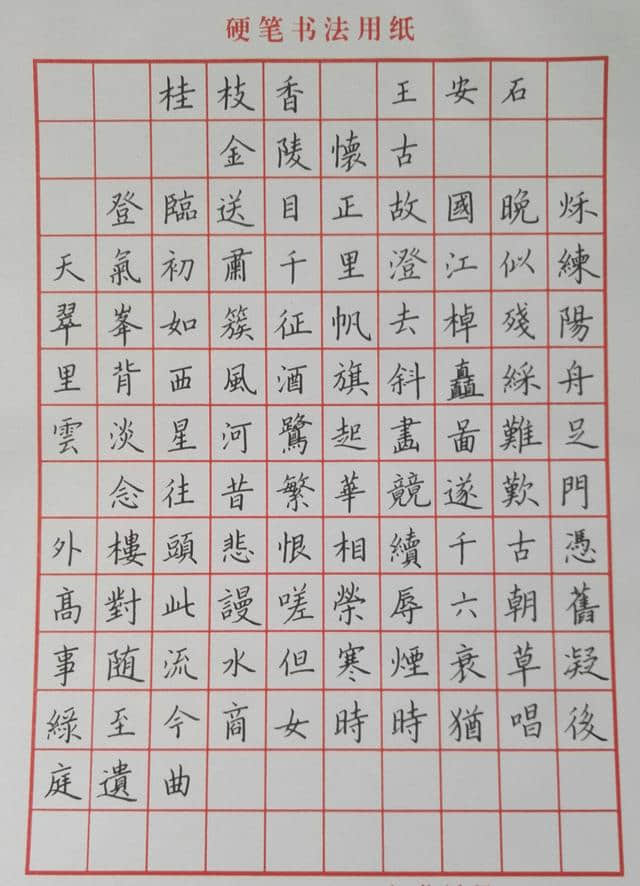 硬笔书法用纸
桂枝香 王安石
金陵懷古
登臨送目正故國晚秌
天氣初肅千里澄江似練
翠峯如簇征帆去棹殘陽
里背西風酒旗斜矗綵舟
雲淡星河鷺起畫啚難足
念往昔繁華競遂歎門
外樓頭悲恨相續千古憑
高對此謾嗟榮辱六朝舊
事随流水但寒煙衰草凝
綠至今商女時時猶唱後
庭遺曲